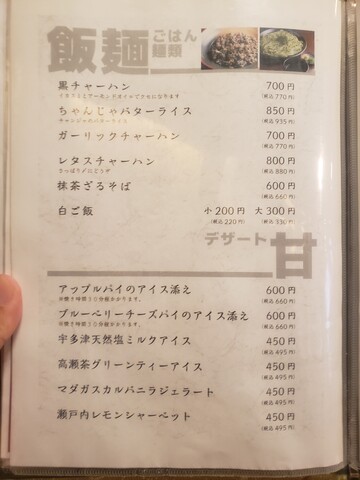 飯麺 ごはん 麺類
黒チャーハン 700円
(税込770円)
ちゃんじゃバターライス 850円
(税込935円)
ガーリックチャーハン 700円
(税込770円)
レタスチャーハン 800円
さっぱり〆にどうぞ (税込880円)
抹茶ざるそば 600円
(税込660円)
白ご飯 小200円 大300円
(税込220円) (税込330円)
デザート 甘
アップルパイのアイス添え 600円
※焼き時間30分程かかります。 (税込660円)
ブルーベリーチーズパイのアイス添え 600円
※焼き時間30分程かかります。 (税込660円)
宇多津天然塩ミルクアイス 450円
(税込495円)
高瀬茶グリーンティーアイス 450円
(税込495円)
マダガスカルバニラジェラート 450円
(税込495円)
瀬戸内レモンシャーベット 450円
(税込495円)